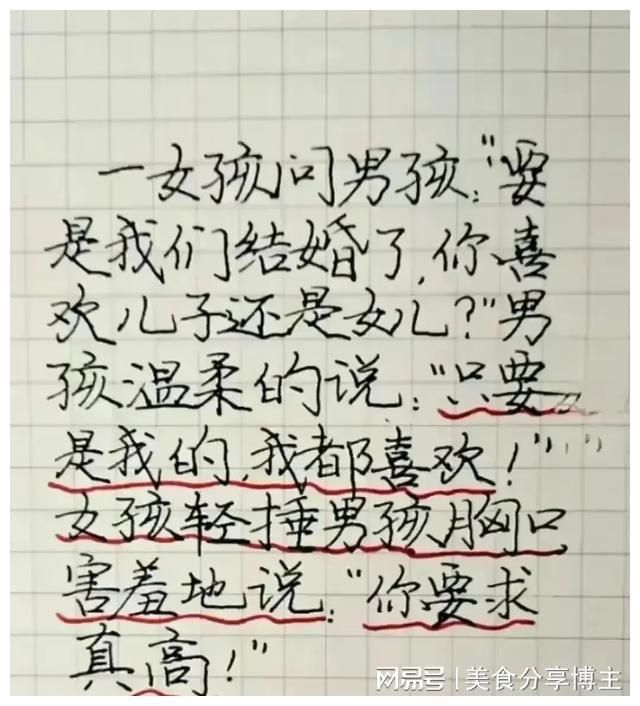 一女孩问男孩："要
是我们结婚了,你喜
欢儿子还是女儿?"男
孩温柔的说："只要
是我的,我都喜欢!"
女孩轻捶男孩胸口
害羞地说："你要求
真高!"
网易号 | 美食分享博主